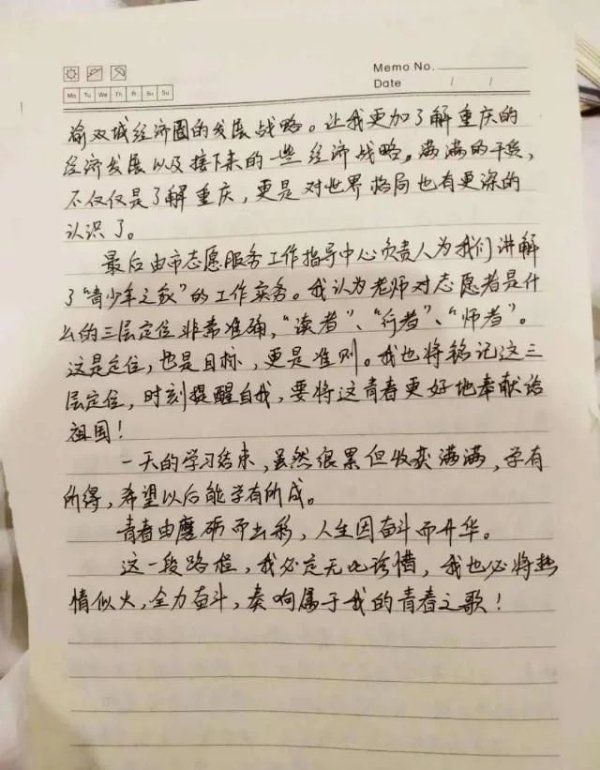 Memo No.
Date / /
Mo Tu We Th Fr Sa Su
渝双城经济圈的发展战略。让我更加了解重庆的
经济发展以及接下来的一些经济战略。满满的干货,
不仅仅是了解重庆,更是对世界格局也有更深的
认识了。
最后由市志愿服务工作指导中心负责人为我们讲解
了“青少年之家”的工作实务。我认为老师对志愿者是什
么的三层定位非常准确,“读者”、“行者”、“师者”。
这是定位,也是目标,更是准则。我也将铭记这三
层定位,时刻提醒自我,要将这青春更好地奉献给
祖国!
一天的学习结束,虽然很累但收获满满,学有
所得,希望以后能学有所成。
青春由磨砺而出彩,人生因奋斗而升华。
这一段路程,我必定无比珍惜,我也必将热
情似火,全力奋斗,奏响属于我的青春之歌!